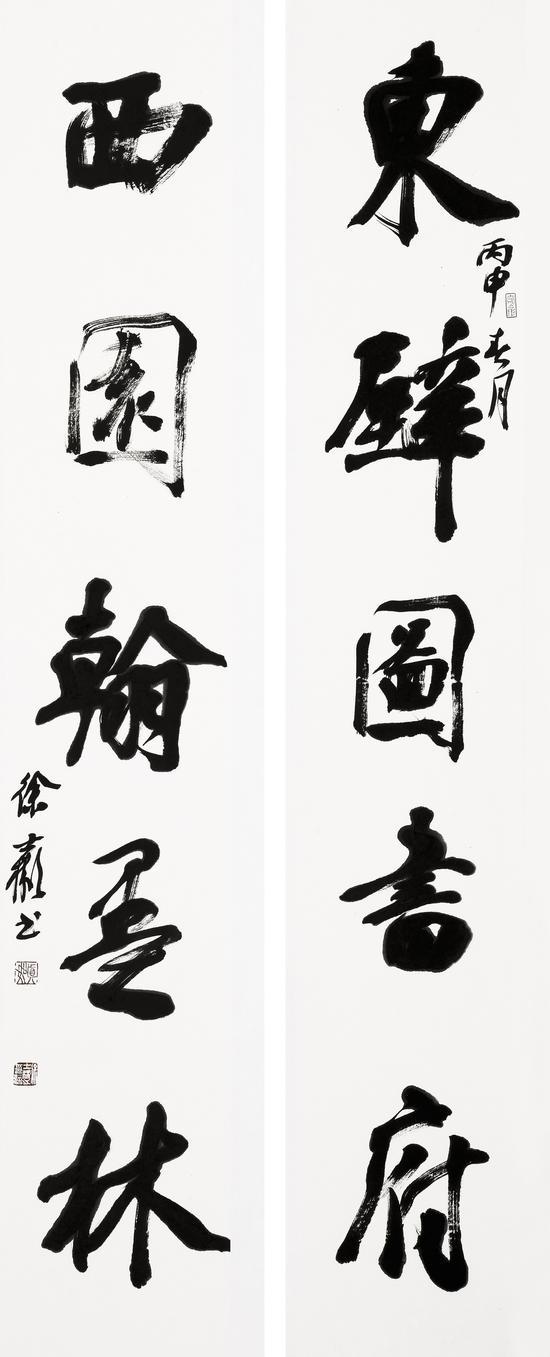 東壁圖書府
丙申
春月
西園翰墨林
徐 书